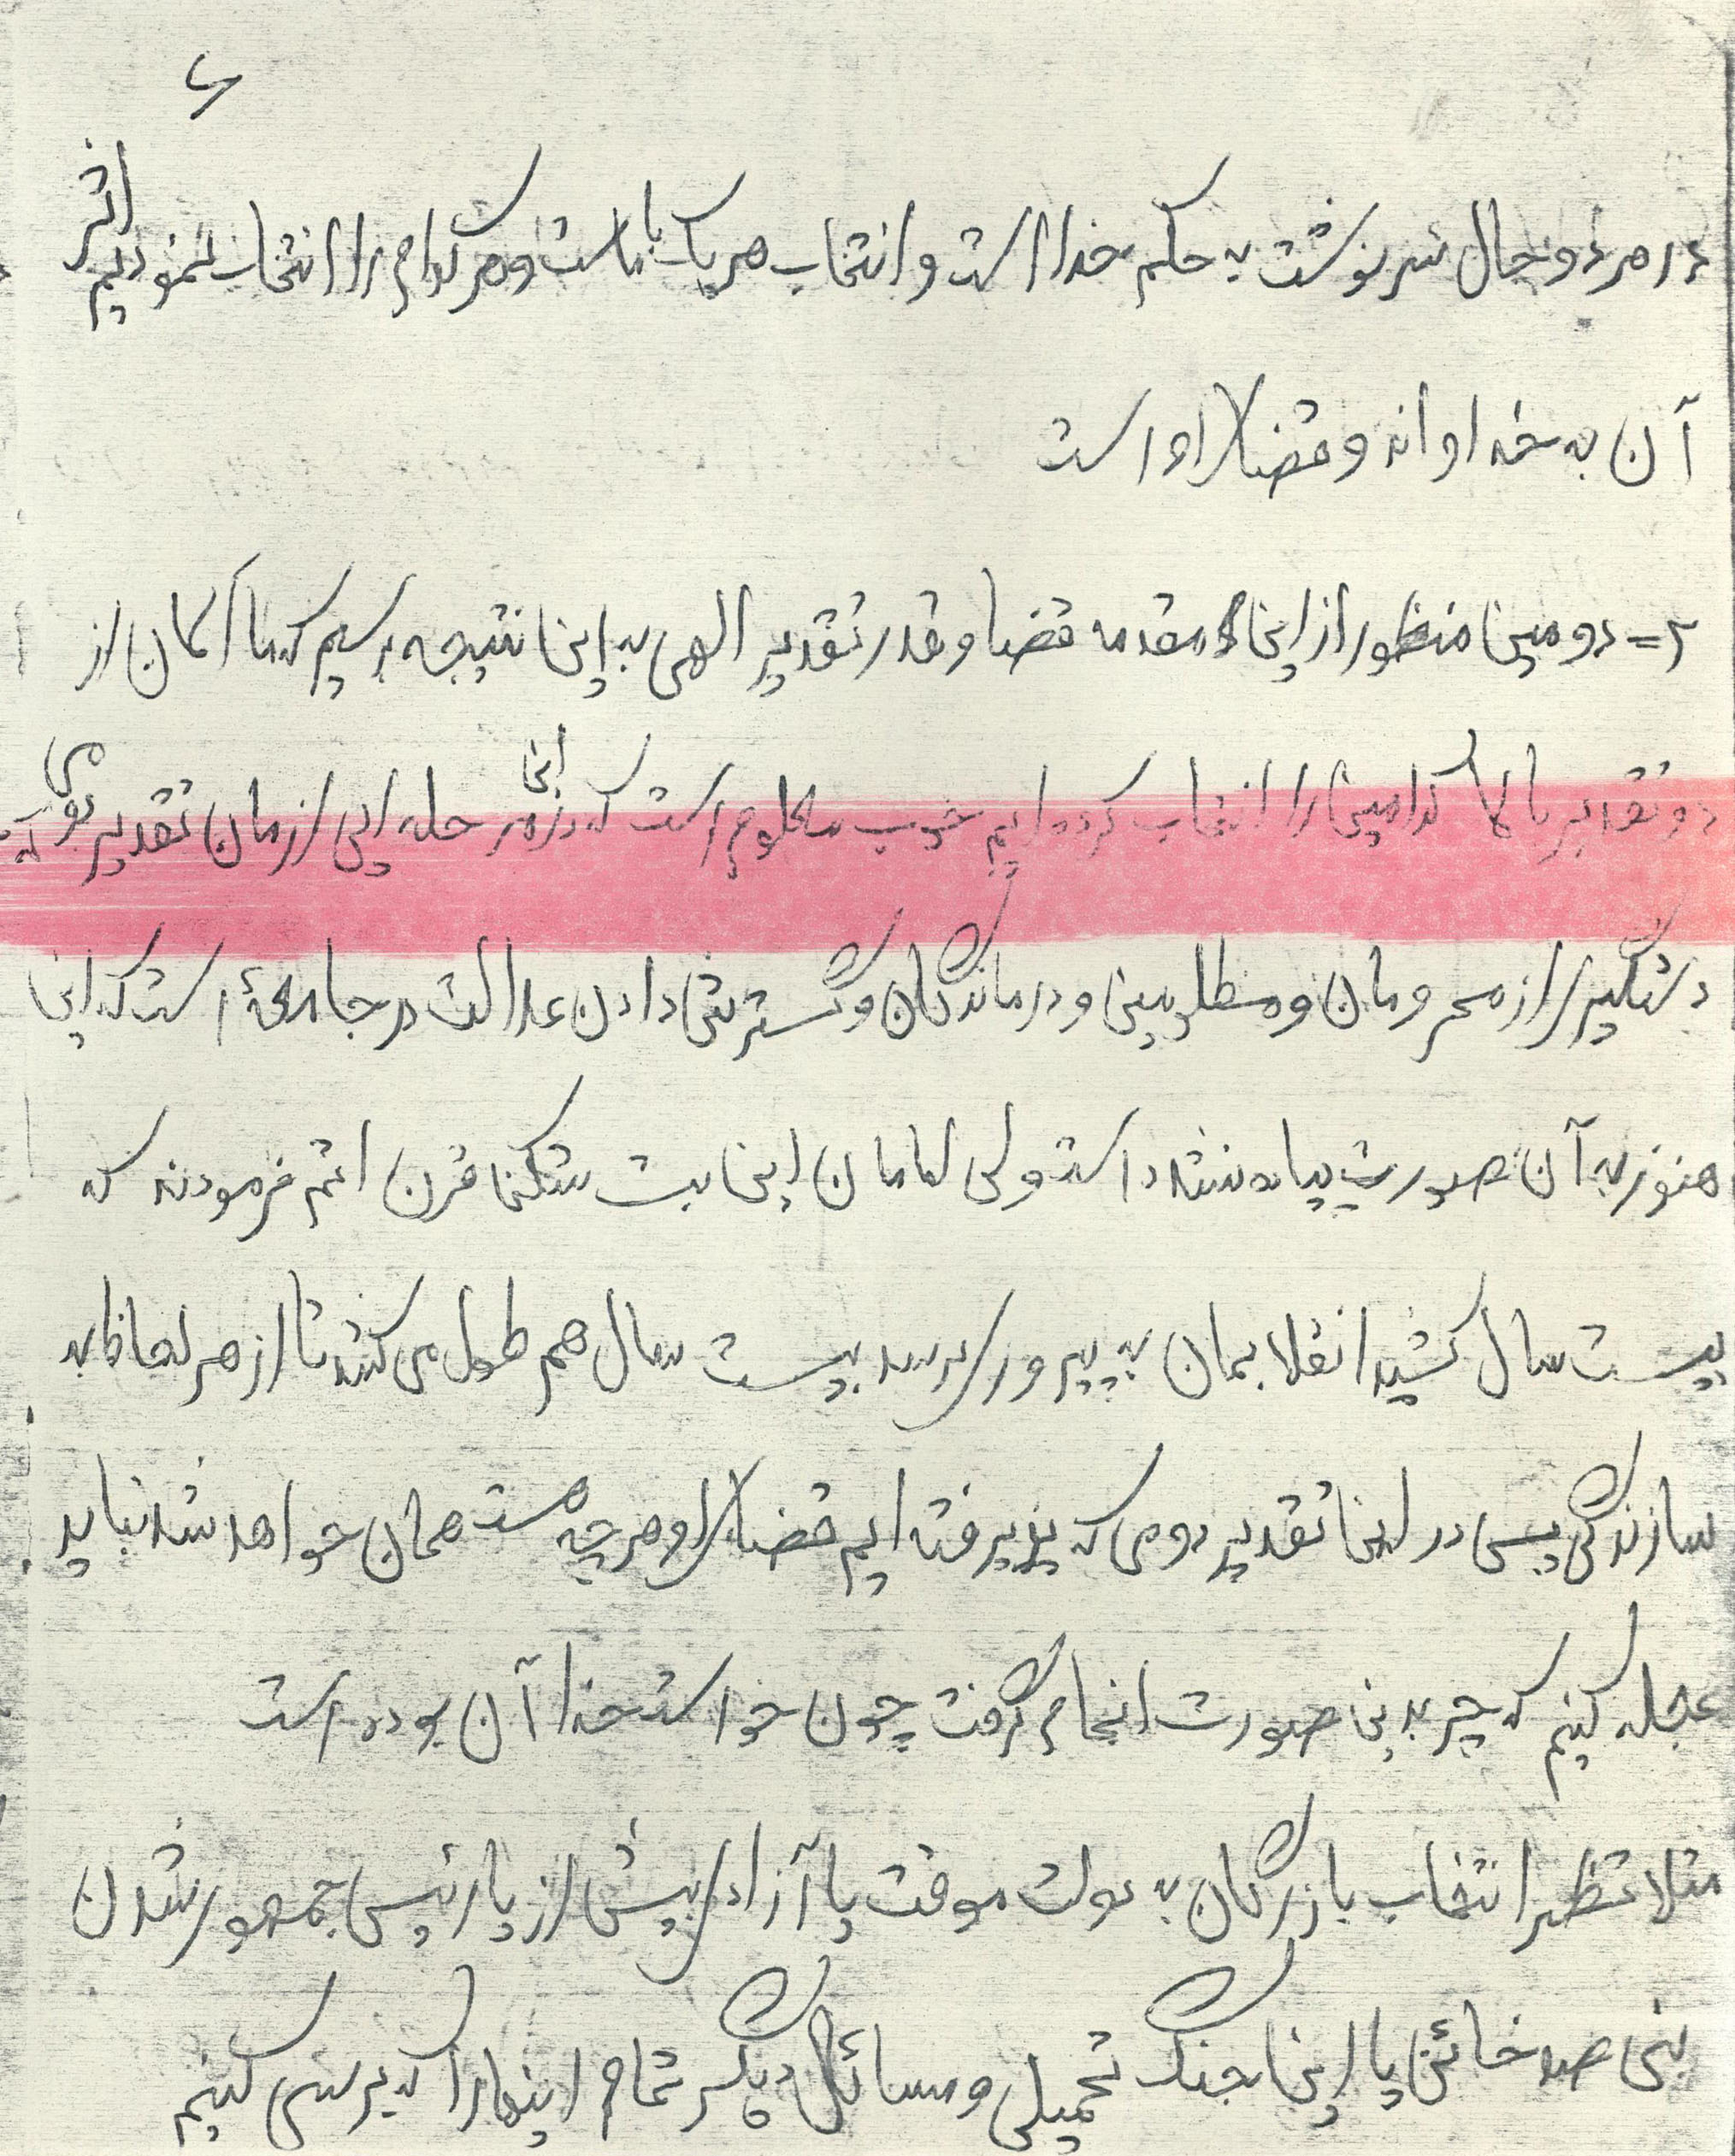 ۶
در هر دو حال سرنوشت به حکم خدا است و انتخاب هر یک با ماست و هر کدام را انتخاب نمودیم اثر
آن به خداوند و قضای او است
۲= دومین منظور از این مقدمه قضا و قدر تقدیر الهی به این نتیجه برسیم که ما الان از
دو تقدیر بالا کدامین را انتخاب کرده‌ایم خوب معلوم است که در این مرحله ایی از زمان تقدیر بوی می آید
دستگیری از محرومان و مظلومین و درماندگان و گسترش دادن عدالت در جامعهٔ است که این
هنوز به آن صورت پیاده نشده است ولی امامان این بت شکن قرن اتم فرمودند که
بیست سال کشید انقلابمان به پیروزی برسد بیست سال هم طول می کشد تا از هر لحاظ به
سازندگی پس در این تقدیر دومی که پذیرفته ایم قضای او هرچه هست همان خواهد شد نباید
عجله کنیم که چر بدین صورت انجام گرفت چون خواست خدا آن بوده است
مثلا نظیر انتخاب بازرگان به دولت موقت یا آزادی بیش از یا رئیس جمهور شدن
بنی صدر خائن یا این جنگ تحمیلی و مسائل دیگر تمام اینها را که بررسی کنیم